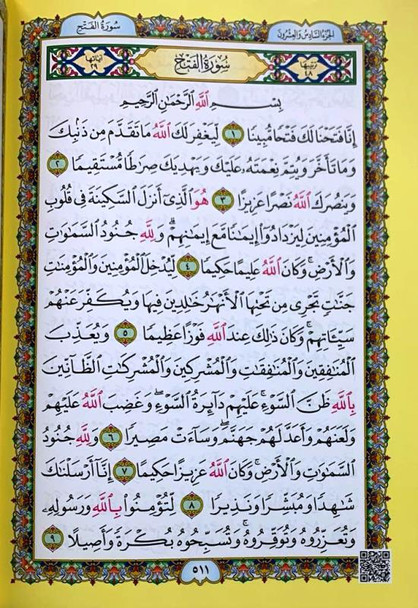 سُورَةُ الفَتْحِ
الجُزْءُ السَّادِسُ وَالعِشْرُونَ
آيَاتُهَا ٢٩
سُورَةُ الفَتْحِ
رَتِيبُهَا ٤٨
بِسْمِ اللَّهِ الرَّحْمَٰنِ الرَّحِيمِ
إِنَّا فَتَحْنَا لَكَ فَتْحًا مُّبِينًا ١ لِّيَغْفِرَ لَكَ اللَّهُ مَا تَقَدَّمَ مِن ذَنۢبِكَ
وَمَا تَأَخَّرَ وَيُتِمَّ نِعْمَتَهُۥ عَلَيْكَ وَيَهْدِيَكَ صِرَٰطًا مُّسْتَقِيمًا ٢
وَيَنصُرَكَ اللَّهُ نَصْرًا عَزِيزًا ٣ هُوَ الَّذِىٓ أَنزَلَ السَّكِينَةَ فِى قُلُوبِ
الْمُؤْمِنِينَ لِيَزْدَادُوٓا۟ إِيمَٰنًا مَّعَ إِيمَٰنِهِمْ ۗ وَلِلَّهِ جُنُودُ السَّمَٰوَٰتِ
وَالْأَرْضِ ۚ وَكَانَ اللَّهُ عَلِيمًا حَكِيمًا ٤ لِّيُدْخِلَ الْمُؤْمِنِينَ وَالْمُؤْمِنَٰتِ
جَنَّٰتٍ تَجْرِى مِن تَحْتِهَا الْأَنْهَٰرُ خَٰلِدِينَ فِيهَا وَيُكَفِّرَ عَنْهُمْ
سَيِّـَٔاتِهِمْ ۚ وَكَانَ ذَٰلِكَ عِندَ اللَّهِ فَوْزًا عَظِيمًا ٥ وَيُعَذِّبَ
الْمُنَٰفِقِينَ وَالْمُنَٰفِقَٰتِ وَالْمُشْرِكِينَ وَالْمُشْرِكَٰتِ الظَّآنِّينَ
بِاللَّهِ ظَنَّ السَّوْءِ ۚ عَلَيْهِمْ دَآئِرَةُ السَّوْءِ ۖ وَغَضِبَ اللَّهُ عَلَيْهِمْ
وَلَعَنَهُمْ وَأَعَدَّ لَهُمْ جَهَنَّمَ ۖ وَسَآءَتْ مَصِيرًا ٦ وَلِلَّهِ جُنُودُ
السَّمَٰوَٰتِ وَالْأَرْضِ ۚ وَكَانَ اللَّهُ عَزِيزًا حَكِيمًا ٧ إِنَّآ أَرْسَلْنَٰكَ
شَٰهِدًا وَمُبَشِّرًا وَنَذِيرًا ٨ لِّتُؤْمِنُوا۟ بِاللَّهِ وَرَسُولِهِۦ
وَتُعَزِّرُوهُ وَتُوَقِّرُوهُ ۚ وَتُسَبِّحُوهُ بُكْرَةً وَأَصِيلًا ٩
٥١١